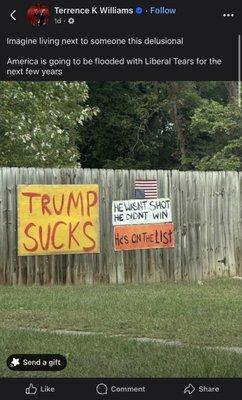 Terrence K Williams · Follow
1d ·
Imagine living next to someone this delusional
America is going to be flooded with Liberal Tears for the
next few years
TRUMP
SUCKS
HE WASNT SHOT
HE DIDNT WIN
HE'S ON THE LIST
Send a gift
Like
Comment
Share